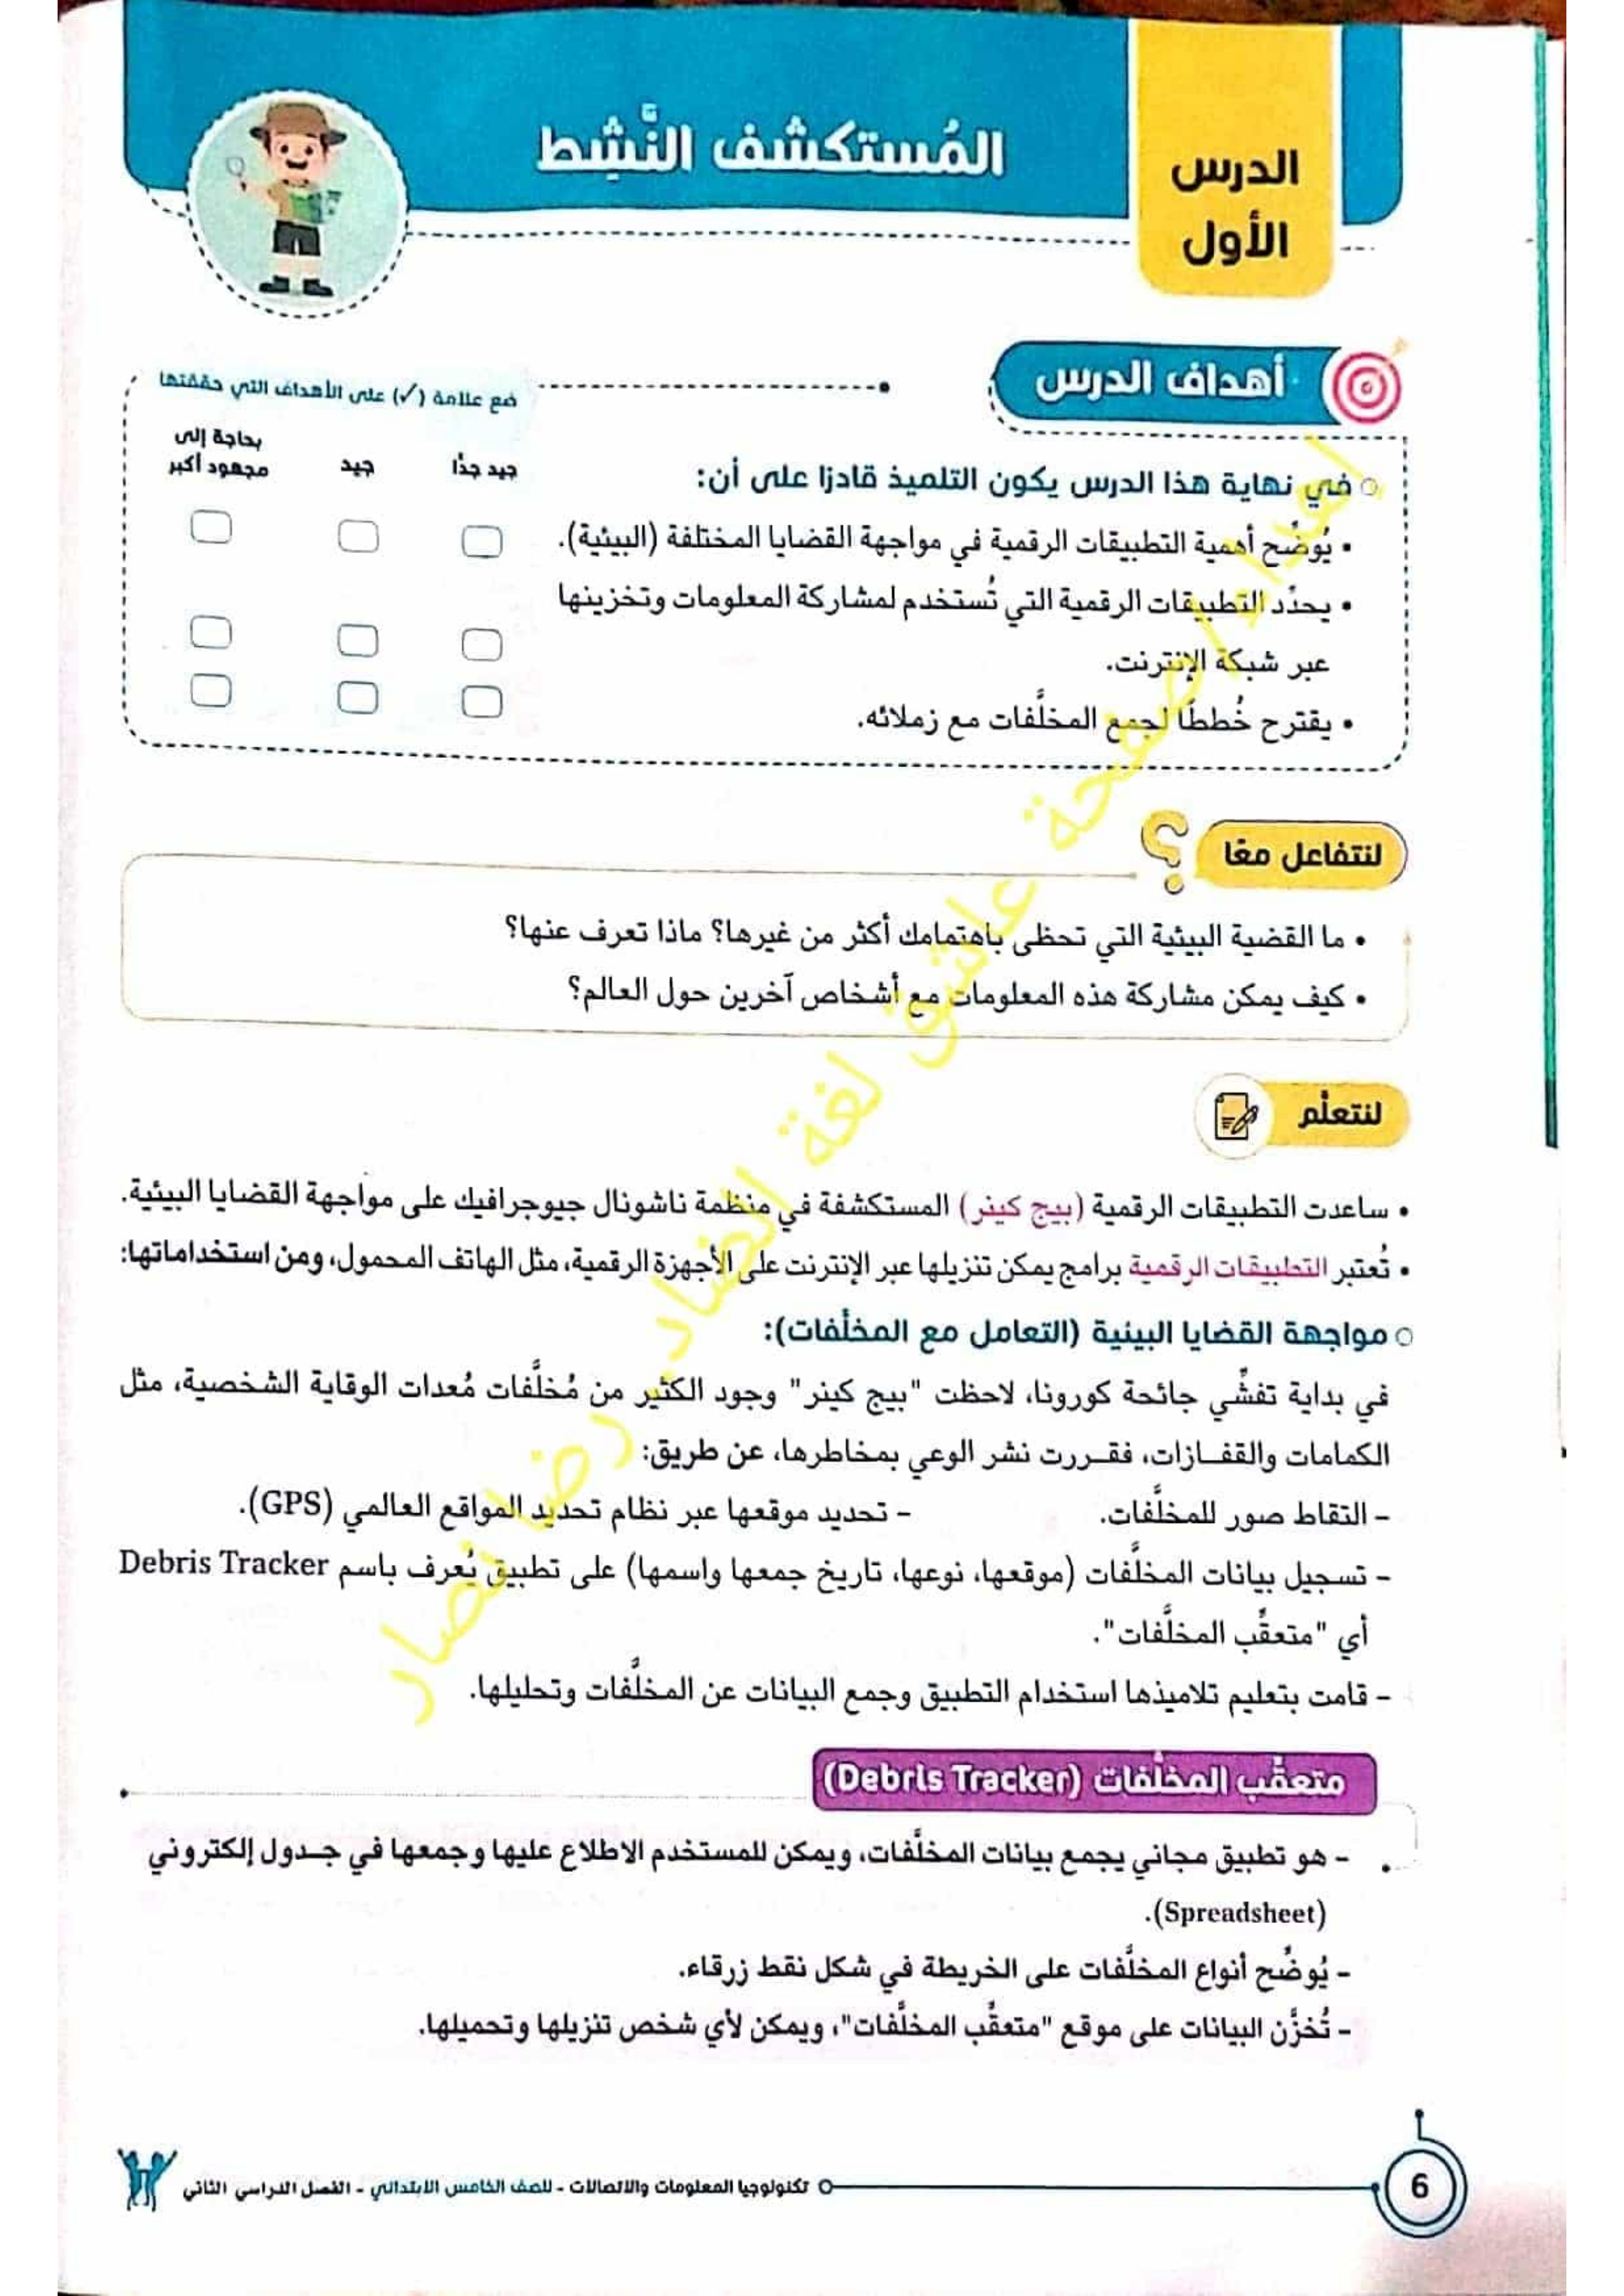 الدرس
الأول
المُستكشف النَّشِط
أهداف الدرس
ضع علامة (✓) على الأهداف التي حققتها
في نهاية هذا الدرس يكون التلميذ قادرًا على أن:
جيد جدًّا
جيد
بحاجة إلى
مجهود أكبر
• يُوضِّح أهمية التطبيقات الرقمية في مواجهة القضايا المختلفة (البيئية).
• يحدِّد التطبيقات الرقمية التي تُستخدم لمشاركة المعلومات وتخزينها
عبر شبكة الإنترنت.
• يقترح خُططًا لجمع المخلَّفات مع زملائه.
لنتفاعل معًا
?
• ما القضية البيئية التي تحظى باهتمامك أكثر من غيرها؟ ماذا تعرف عنها؟
• كيف يمكن مشاركة هذه المعلومات مع أشخاص آخرين حول العالم؟
لنتعلَّم
• ساعدت التطبيقات الرقمية (بيج كينر) المستكشفة في منظمة ناشونال جيوجرافيك على مواجهة القضايا البيئية.
• تُعتبر التطبيقات الرقمية برامج يمكن تنزيلها عبر الإنترنت على الأجهزة الرقمية، مثل الهاتف المحمول، ومن استخداماتها:
مواجهة القضايا البيئية (التعامل مع المخلَّفات):
في بداية تفشِّي جائحة كورونا، لاحظت "بيج كينر" وجود الكثير من مُخلَّفات مُعدات الوقاية الشخصية، مثل
الكمامات والقفـازات، فقـررت نشر الوعي بمخاطرها، عن طريق:
- التقاط صور للمخلَّفات. - تحديد موقعها عبر نظام تحديد المواقع العالمي (GPS).
- تسجيل بيانات المخلَّفات (موقعها، نوعها، تاريخ جمعها واسمها) على تطبيق يُعرف باسم Debris Tracker
أي "متعقِّب المخلَّفات".
- قامت بتعليم تلاميذها استخدام التطبيق وجمع البيانات عن المخلَّفات وتحليلها.
متعقِّب المخلَّفات (Debris Tracker)
- هو تطبيق مجاني يجمع بيانات المخلَّفات، ويمكن للمستخدم الاطلاع عليها وجمعها في جـدول إلكتروني
(Spreadsheet).
- يُوضِّح أنواع المخلَّفات على الخريطة في شكل نقط زرقاء.
- تُخزَّن البيانات على موقع "متعقِّب المخلَّفات"، ويمكن لأي شخص تنزيلها وتحميلها.
إهداء/ صفحة عاشق لغة الضاد. رضا نصار
6
تكنولوجيا المعلومات والاتصالات - للصف الخامس الابتدائي - الفصل الدراسي الثاني